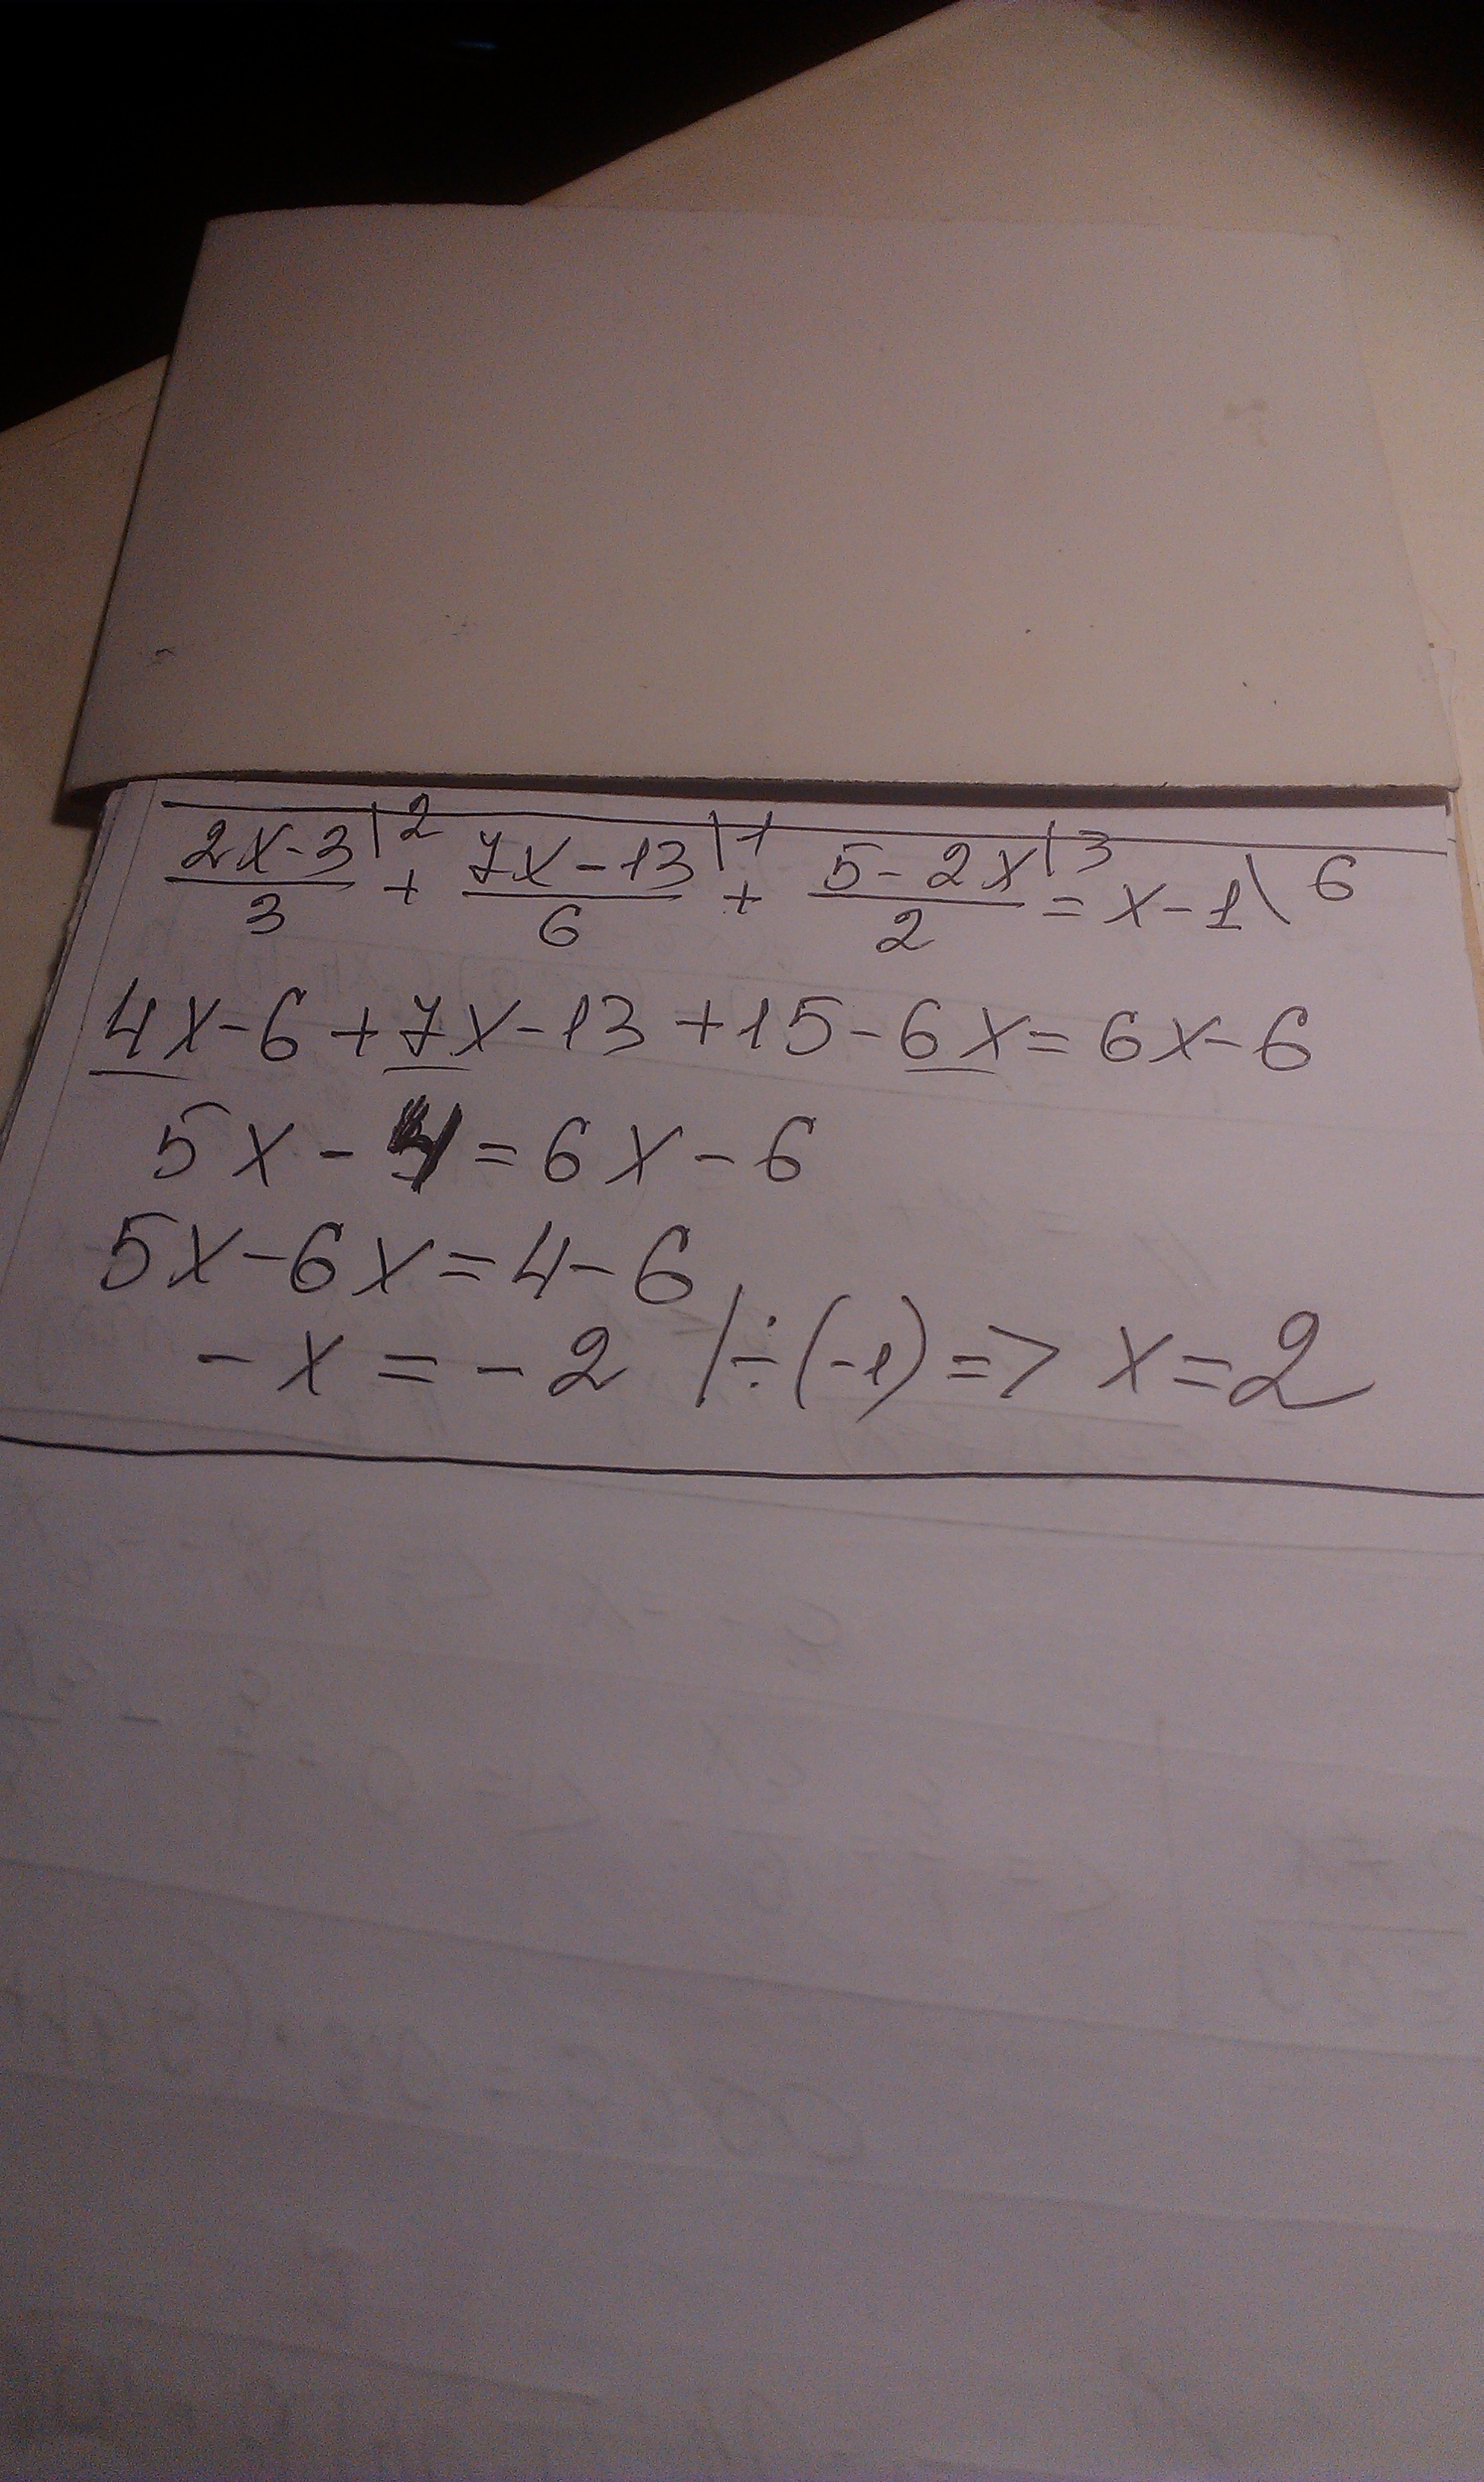 (2x-3)/3 \2 + (7x-13)/6 \1 + (5-2x)/2 \3 = x-1 \6
4x-6+7x-13+15-6x=6x-6
5x-4=6x-6
5x-6x=4-6
-x=-2 /÷(-1)=> x=2